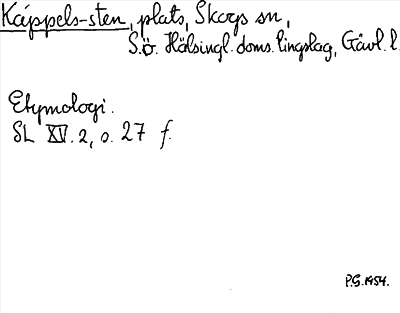 Käppels-sten, plats, Skogs sn,
S.ö. Hälsingl. doms. tingslag, Gävl. l.
Etymologi.
SL XV. 2, s. 27 f.
P.G. 1954.